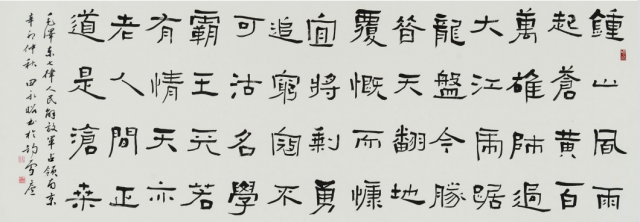 鍾山風雨
起蒼黃百
萬雄師過
大江虎踞
龍盤今勝
昔天翻地
覆慨而慷
宜將剩勇
追窮寇不
可沽名學
霸王天若
有情天亦
老人間正
道是滄桑
毛澤東七律人民解放軍占領南京
辛卯仲秋 田永昭书於